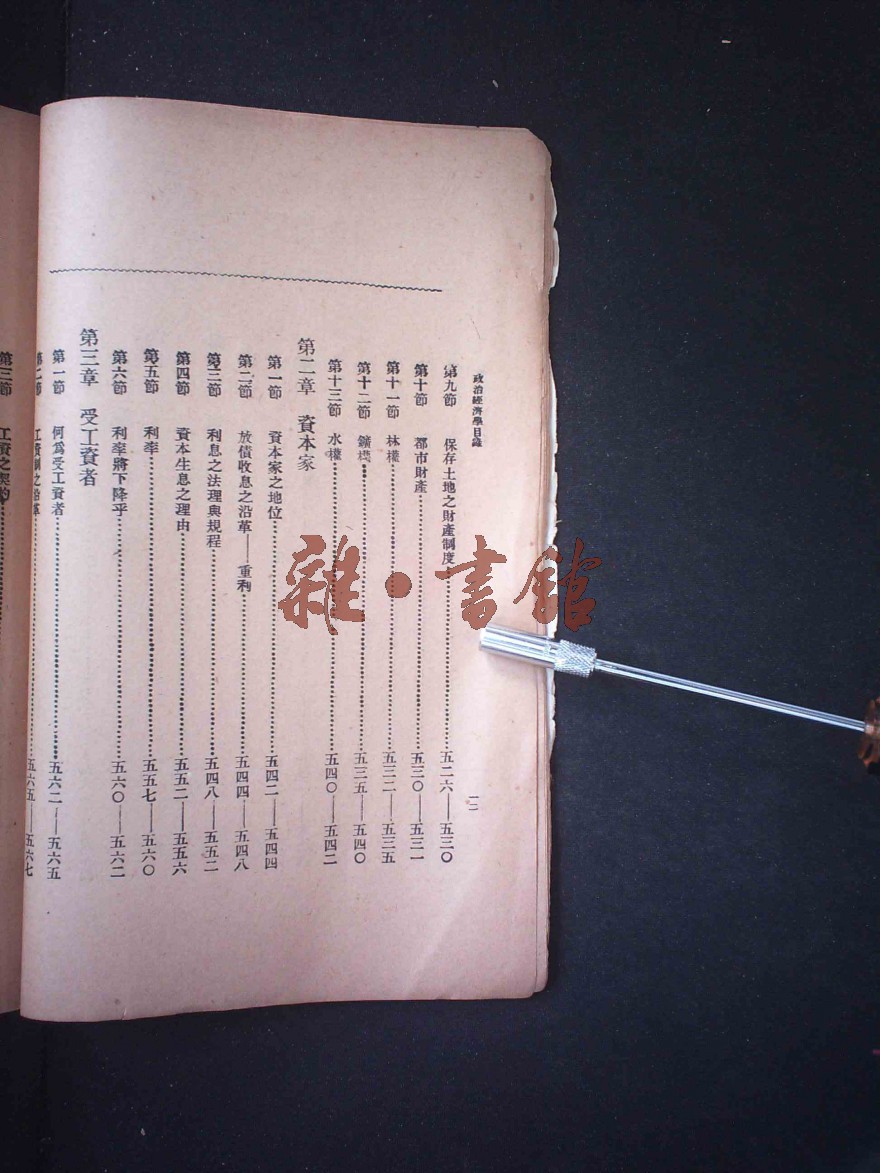 政治經濟學目錄
二
第九節 保存土地之財產制度…………五二六——五三〇
第十節 都市財產…………五三〇——五三一
第十一節 林權…………五三二——五三五
第十二節 鑛權…………五三五——五四〇
第十三節 水權…………五四〇——五四二
第二章 資本家
第一節 資本家之地位…………五四二——五四四
第二節 放債收息之沿革——重利…………五四四——五四八
第三節 利息之法理與規程…………五四八——五五二
第四節 資本生息之理由…………五五二——五五六
第五節 利率…………五五七——五六〇
第六節 利率將下降乎…………五六〇——五六二
第三章 受工資者
第一節 何爲受工資者…………五六二——五六五
第二節 工資制之沿革…………五六五——五六七
第三節 工資之契約…………
雜·書館